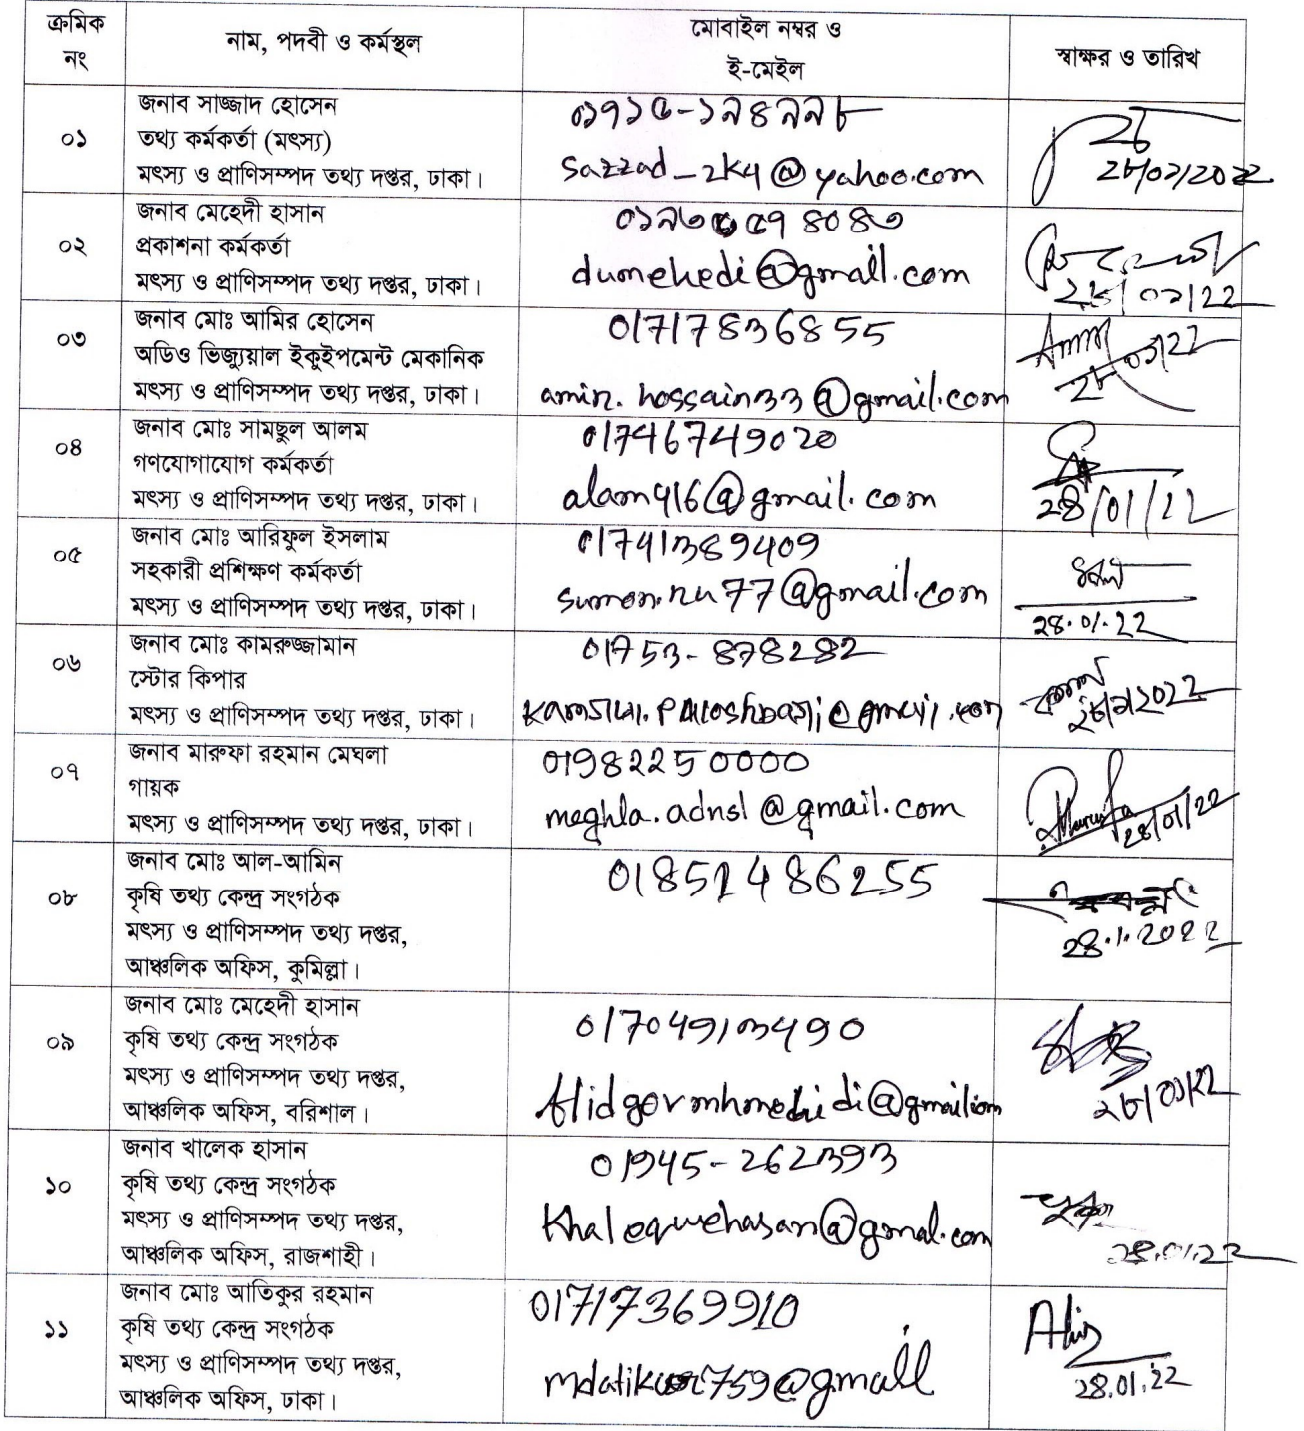 ক্রমিক
নং
নাম, পদবী ও কর্মস্থল
মোবাইল নম্বর ও
ই-মেইল
স্বাক্ষর ও তারিখ
০১
জনাব সাজ্জাদ হোসেন
তথ্য কর্মকর্তা (মৎস্য)
মৎস্য ও প্রাণিসম্পদ তথ্য দপ্তর, ঢাকা।
০১৭১৫-১৯৪৯৯৮
sazzad_2k4@yahoo.com
২৮/০১/২০২২
০২
জনাব মেহেদী হাসান
প্রকাশনা কর্মকর্তা
মৎস্য ও প্রাণিসম্পদ তথ্য দপ্তর, ঢাকা।
dumehedi@gmail.com
২৮/০১/22
০৩
জনাব মোঃ আমির হোসেন
অডিও ভিজ্যুয়াল ইকুইপমেন্ট মেকানিক
মৎস্য ও প্রাণিসম্পদ তথ্য দপ্তর, ঢাকা।
01717836855
amir.hossain33@gmail.com
০৪
জনাব মোঃ সামছুল আলম
গণযোগাযোগ কর্মকর্তা
মৎস্য ও প্রাণিসম্পদ তথ্য দপ্তর, ঢাকা।
01746749020
alam416@gmail.com
28/01/22
০৫
জনাব মোঃ আরিফুল ইসলাম
সহকারী প্রশিক্ষণ কর্মকর্তা
মৎস্য ও প্রাণিসম্পদ তথ্য দপ্তর, ঢাকা।
01741389409
sumon.nu77@gmail.com
28.01.22
০৬
জনাব মোঃ কামরুজ্জামান
স্টোর কিপার
মৎস্য ও প্রাণিসম্পদ তথ্য দপ্তর, ঢাকা।
01753-878282
০৭
জনাব মারুফা রহমান মেঘলা
গায়ক
মৎস্য ও প্রাণিসম্পদ তথ্য দপ্তর, ঢাকা।
01982250000
meghla.adnsl@gmail.com
Marufa
28/01/22
০৮
জনাব মোঃ আল-আমিন
কৃষি তথ্য কেন্দ্র সংগঠক
মৎস্য ও প্রাণিসম্পদ তথ্য দপ্তর,
আঞ্চলিক অফিস, কুমিল্লা।
01851486255
28.1.2022
০৯
জনাব মোঃ মেহেদী হাসান
কৃষি তথ্য কেন্দ্র সংগঠক
মৎস্য ও প্রাণিসম্পদ তথ্য দপ্তর,
আঞ্চলিক অফিস, বরিশাল।
01704913490
২৮/০১/২২
১০
জনাব খালেক হাসান
কৃষি তথ্য কেন্দ্র সংগঠক
মৎস্য ও প্রাণিসম্পদ তথ্য দপ্তর,
আঞ্চলিক অফিস, রাজশাহী।
01945-262393
28.01.22
১১
জনাব মোঃ আতিকুর রহমান
কৃষি তথ্য কেন্দ্র সংগঠক
মৎস্য ও প্রাণিসম্পদ তথ্য দপ্তর,
আঞ্চলিক অফিস, ঢাকা।
01717369910
mdatikur759@gmail
28.01.22